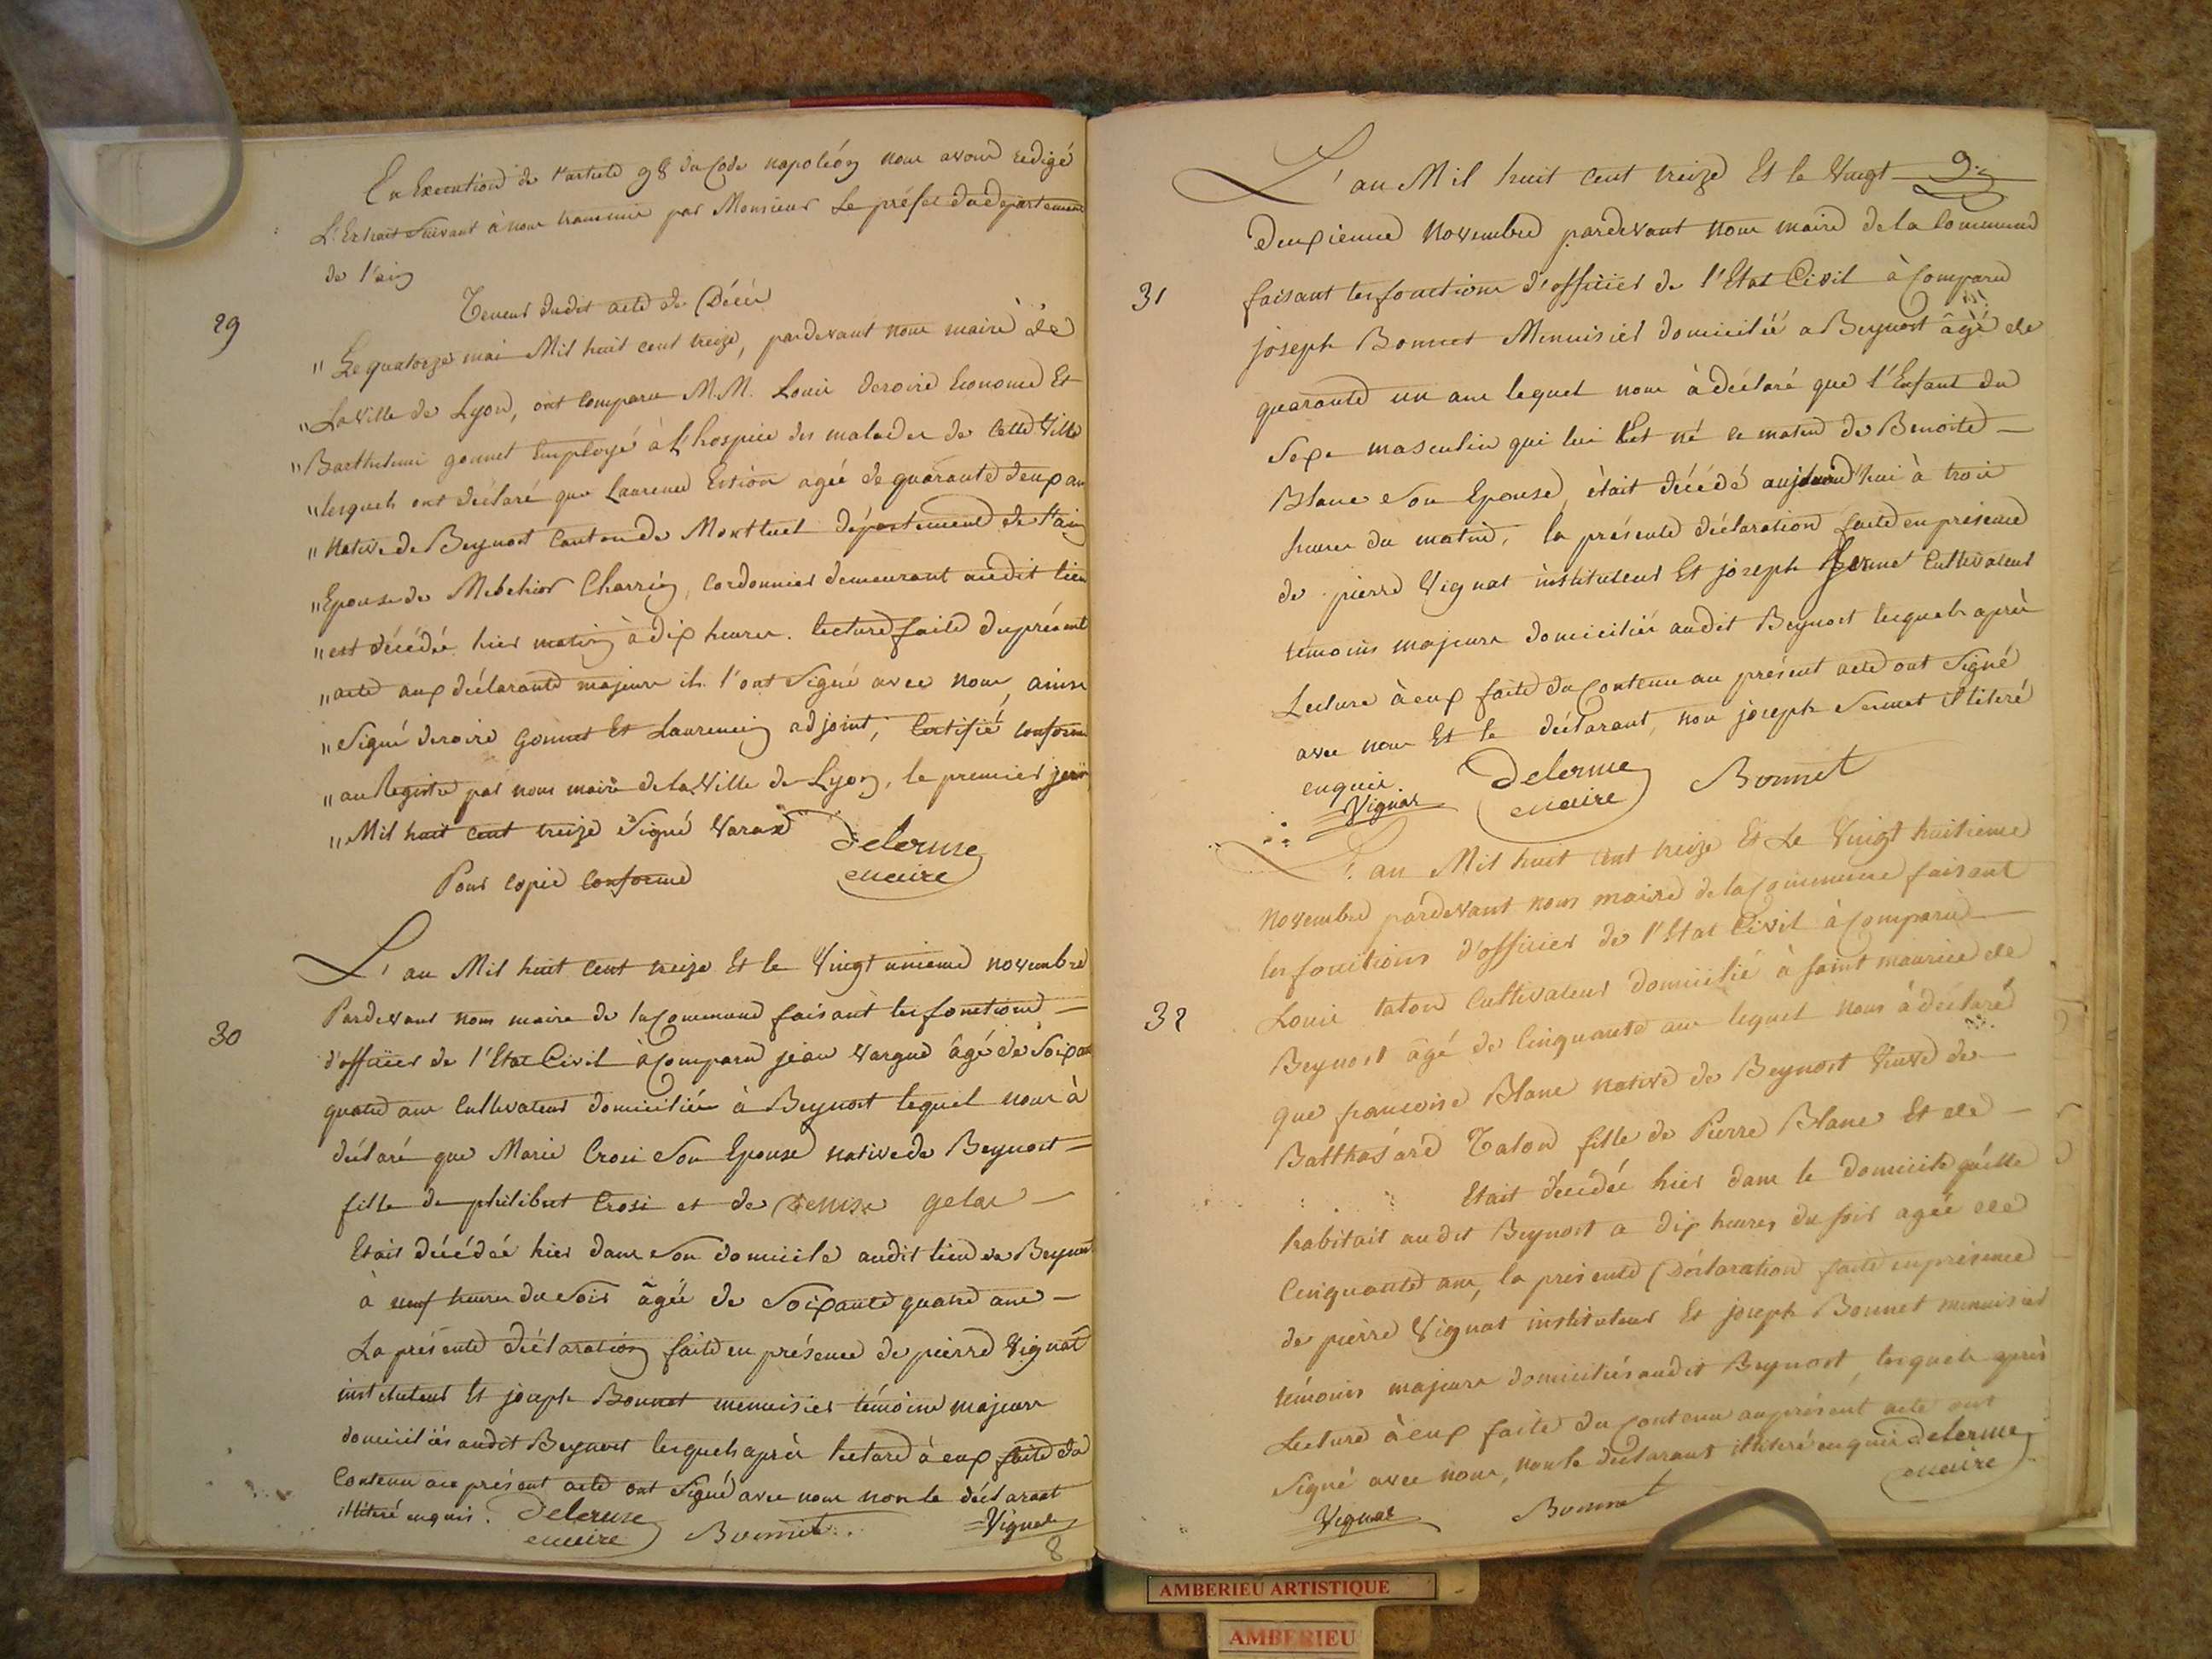 En Execution de l'article 98 du Code napoléon nous avons redigé
L'Extrait Suivant à nous transmis par Monsieur Le préfet du département
de l'ain
Teneur dudit acte de Décès
29
" Le quatorze mai Mil huit cent treize, pardevant nous maire de
" La Ville de Lyon, ont comparu M.M. Louis deroire Econome Et
" Barthelemi gonnet Employé à l'hospice des malades de cette Ville
" lesquels ont déclaré que Laurence agée de quarante deux ans
" Native de Beynost Canton de Montluel département de l'ain
" Epouse de Melchior Charrin, Cordonnier demeurant audit lieu
" est décédée hier matin à dix heures. lecture faite du présent
" acte aux déclarants majeurs ils l'ont Signé avec nous, ainsi
" Signé deroire Gonnet Et Laurencin adjoint, Certifié conforme
" au Registre par nous maire de la Ville de Lyon, le premier juin
" Mil huit cent treize Signé Varax
Pour copie conforme
Delerme
maire
30
L'an Mil huit cent treize Et le Vingt unieme novembre
Pardevant nous maire de la Commune faisant les fonctions
d'officier de l'Etat Civil à Comparu jean Vargue âgé de Soixante
quatre ans Cultivateur domicilié à Beynost lequel nous à
déclaré que Marie Crosi Son Epouse native de Beynost
fille de philibert Crosi et de Denise gelas
Etait décédée hier dans Son domicile audit lieu de Beynost
à neuf heures du Soir âgée de Soixante quatre ans
La présente déclaration faite en présence de pierre Vignat
instituteur Et joseph Bonnet menuisier témoins majeurs
domiciliés audit Beynost lesquels après lecture à eux faite du
Contenu au présent acte ont Signé avec nous non le déclarant
illiteré enquis. Delerme
maire Bonnet Vignat
8
9.
L'an Mil huit cent treize Et le Vingt
deuxieme Novembre pardevant nous maire de la Commune
31
faisant les fonctions d'officier de l'Etat Civil à Comparu
joseph Bonnet Menuisier domicilié a Beynost âgé de
quarante un ans lequel nous à déclaré que l'Enfant du
Sexe masculin qui lui Est né ce matin de Benoite
Blanc Son Epouse, était décédé aujourd'hui à trois
heures du matin, la présente déclaration faite en présence
de pierre Vignat instituteur Et joseph Sermet Cultivateur
témoins majeurs domiciliés audit Beynost lesquels après
Lecture à eux faite du Contenu au présent acte ont Signé
avec nous Et le déclarant, non joseph Sermet illiteré
enquis.
Vignat Delerme
maire Bonnet
L'an Mil huit cent treize Et Le Vingt huitieme
Novembre pardevant nous maire de la Commune faisant
les fonctions d'officier de l'Etat Civil à Comparu
32
Louis taton Cultivateur domicilié à Saint maurice de
Beynost âgé de Cinquante ans lequel nous à déclaré
que francoise Blanc native de Beynost Veuve de
Balthasard Taton fille de Pierre Blanc Et de
Etait décédée hier dans le domicile qu'elle
habitait audit Beynost a dix heures du soir agée de
Cinquante ans, la présente Déclaration faite en présence
de pierre Vignat instituteur Et joseph Bonnet menuisier
témoins majeurs domiciliés audit Beynost, lesquels après
Lecture à eux faite du Contenu au présent acte ont
Signé avec nous, non le déclarant illiteré enquis Delerme
maire
Vignat Bonnet
AMBERIEU ARTISTIQUE
AMBERIEU